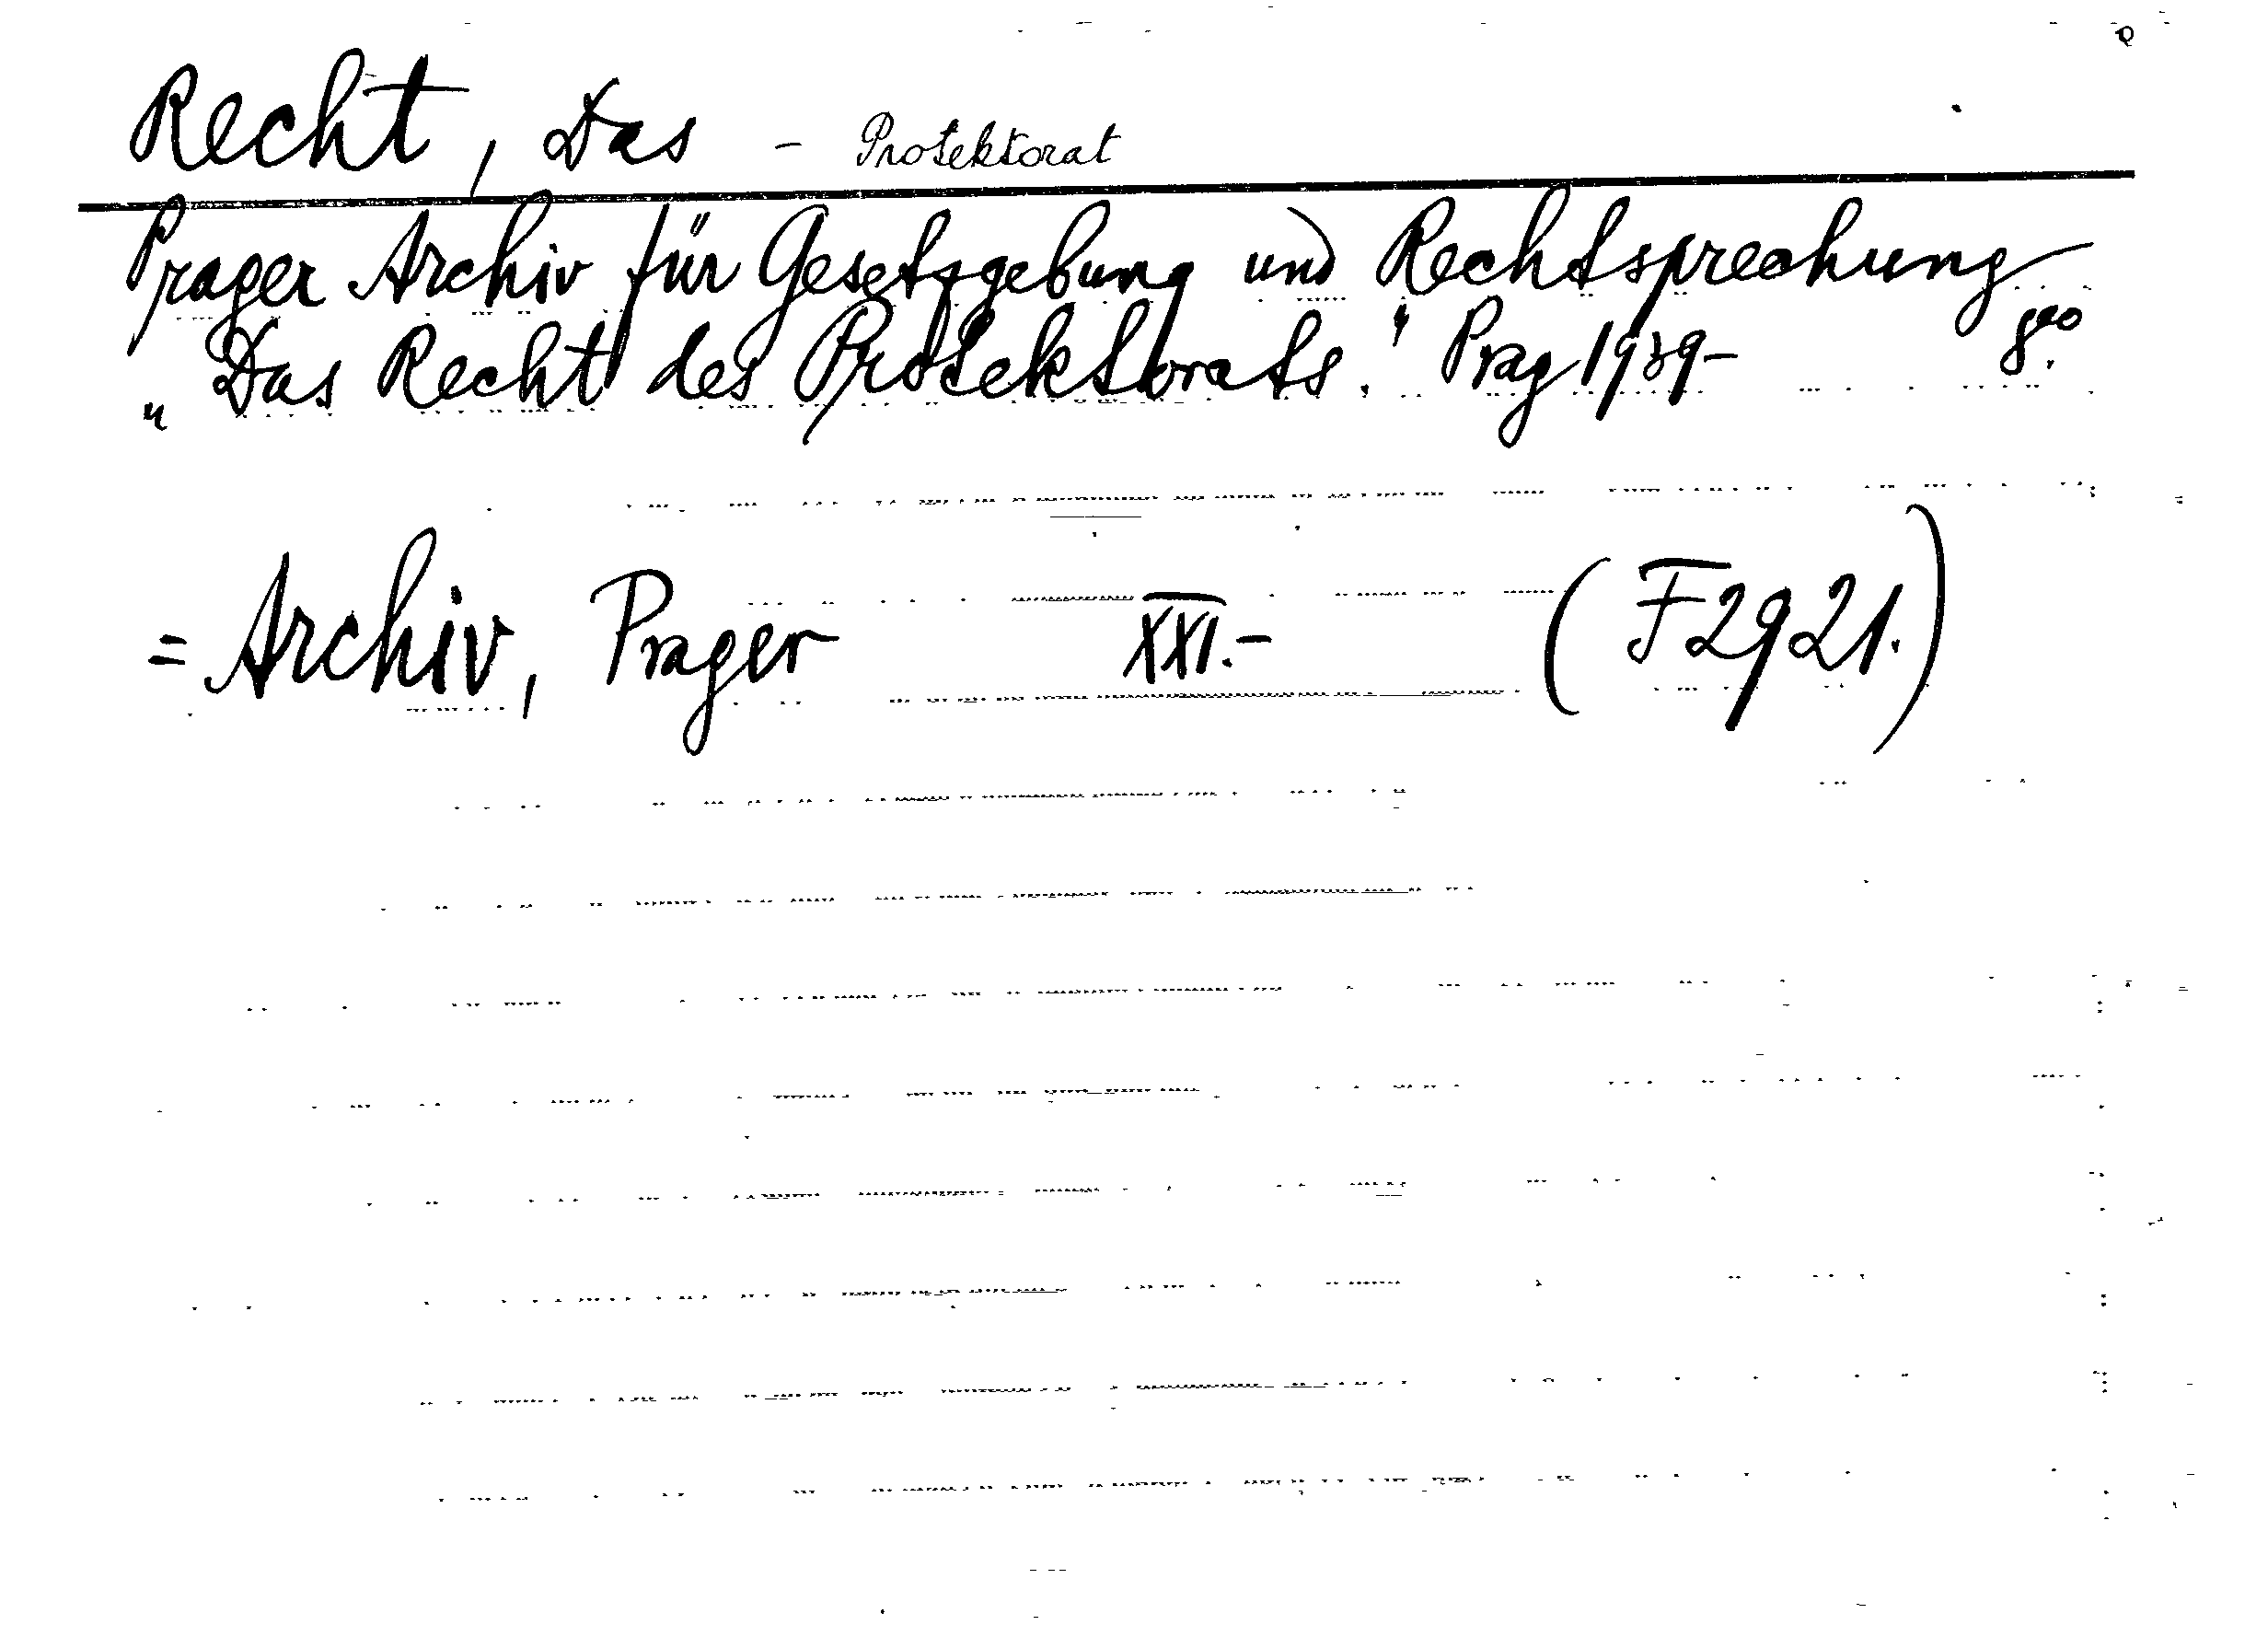 Recht, Das - Protektorat
Prager Archiv für Gesetzgebung und Rechtsprechung
„Das Recht des Protektorats." Prag 1939- 8°.
= Archiv, Prager XXI.- (F2921.)